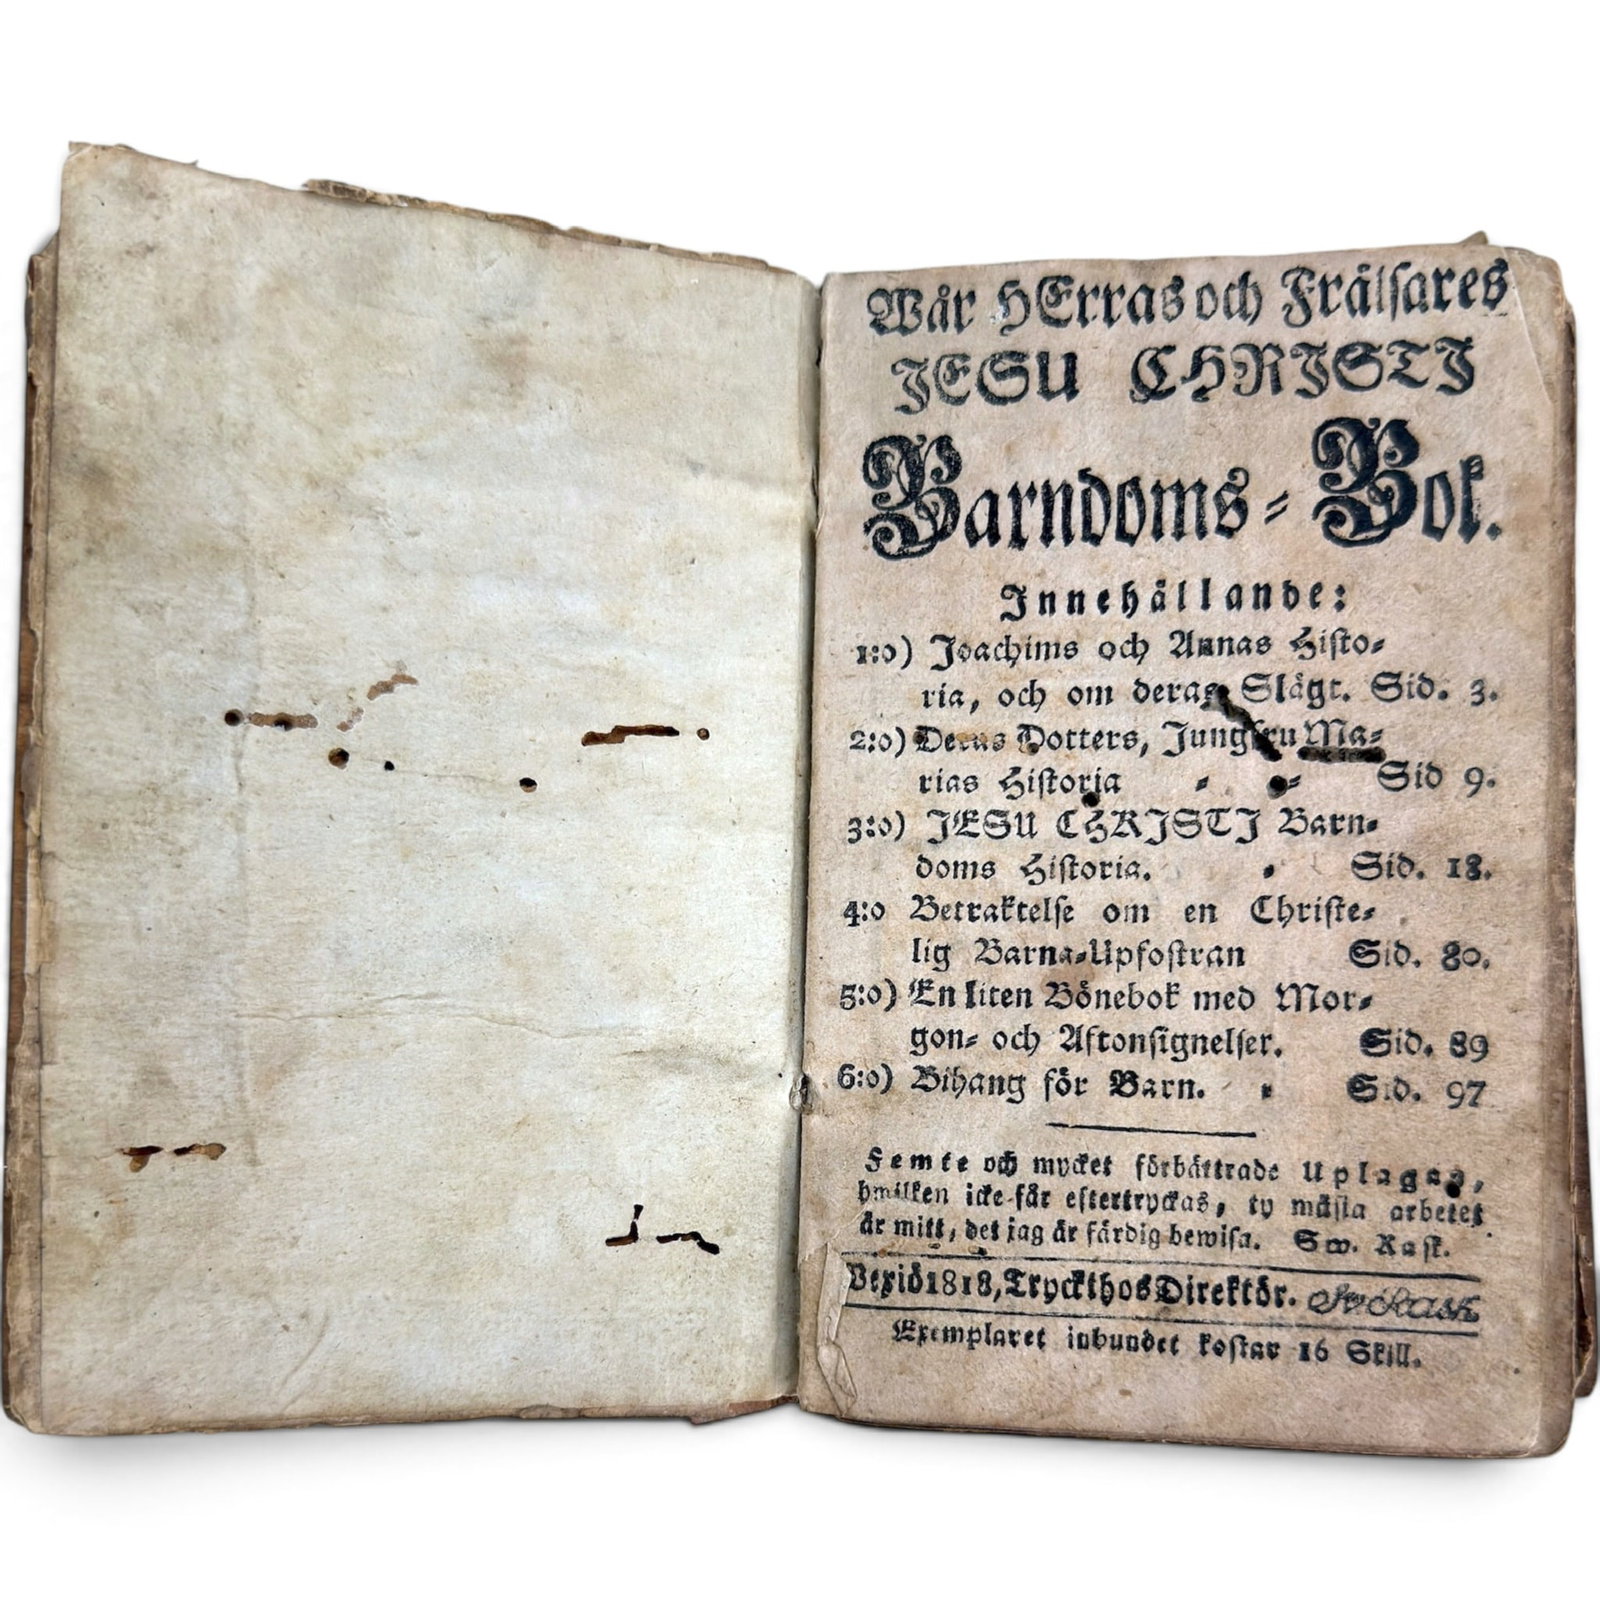 Wår HErras och Frälsares
JESU CHRISTI
Barndoms-Bok.
Innehållande:
1:o) Joachims och Annas Histo-
ria, och om deras Slägt. Sid. 3.
2:o) Deras Dotters, Jungfru Ma-
rias Historia - - Sid 9.
3:o) JESU CHRISTI Barn-
doms Historia. - Sid. 18.
4:o Betraktelse om en Christe-
lig Barna-Upfostran Sid. 80.
5:o) En liten Bönebok med Mor-
gon- och Aftonsignelser. Sid. 89
6:o) Bihang för Barn. - Sid. 97
Femte och mycket förbättrade Uplagan,
hwilken icke får eftertryckas, ty mästa arbetet
är mitt, det jag är färdig bewisa. Sw. Rask.
Vexiö 1818, Tryckt hos Direktör. Sv Rask
Exemplaret inbundet kostar 16 Skill.